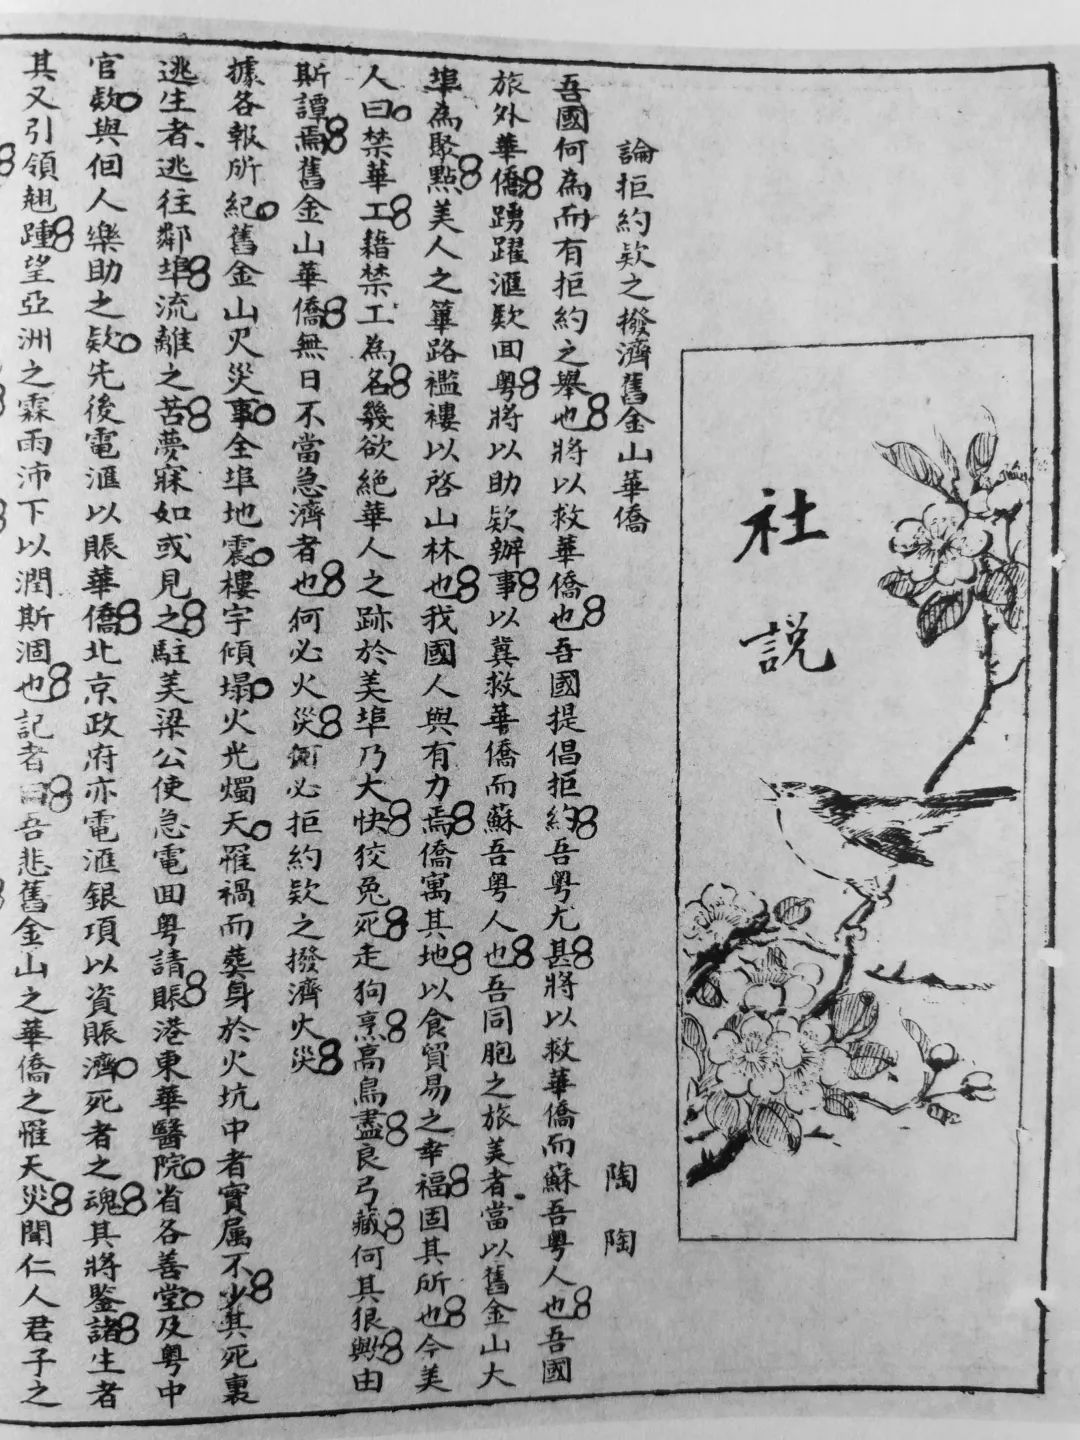 社說
論拒約欵之撥濟舊金山華僑
陶陶
吾國何為而有拒約之舉也將以救華僑也吾國提倡拒約吾粵尤甚將以救華僑而蘇吾粵人也吾國
旅外華僑踴躍滙欵回粵將以助欵辦事以冀救華僑而蘇吾粵人也吾同胞之旅美者當以舊金山大
埠為聚點美人之篳路襤褸以啓山林也我國人與有力焉僑寓其地以食貿易之幸福固其所也今美
人曰禁華工藉禁工為名幾欲絕華人之跡於美埠乃大快狡兔死走狗烹高鳥盡良弓藏何其狠歟由
斯譚焉舊金山華僑無日不當急濟者也何必火災何必拒約欵之撥濟火災
據各報所紀舊金山火災事全埠地震樓宇傾塌火光燭天罹禍而葬身於火坑中者實属不少其死裏
逃生者逃往鄰埠流離之苦夢寐如或見之駐美梁公使急電回粵請賑港東華醫院省各善堂及粵中
官欵與個人樂助之欵先後電滙以賑華僑北京政府亦電滙銀項以資賑濟死者之魂其將鑒諸生者
其又引領翹踵望亞洲之霖雨沛下以潤斯涸也記者曰吾悲舊金山之華僑之罹天災聞仁人君子之